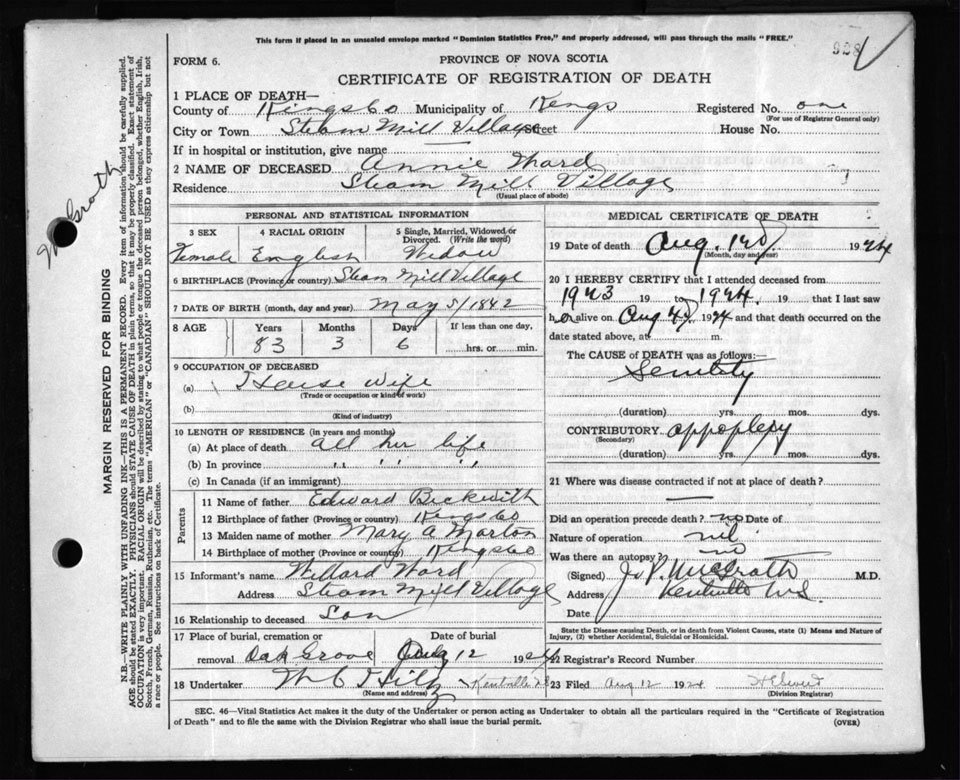 This form if placed in an unsealed envelope marked "Dominion Statistics Free," and properly addressed, will pass through the mails "FREE."
928
FORM 6.
PROVINCE OF NOVA SCOTIA
CERTIFICATE OF REGISTRATION OF DEATH
1 PLACE OF DEATH—
County of Kings Co Municipality of Kings Registered No. one
(For use of Registrar General only)
City or Town Steam Mill Village Street House No.
If in hospital or institution, give name
2 NAME OF DECEASED Annie Ward
Residence Steam Mill Village
(Usual place of abode)
PERSONAL AND STATISTICAL INFORMATION
3 SEX 4 RACIAL ORIGIN 5 Single, Married, Widowed or Divorced. (Write the word)
Female English Widow
6 BIRTHPLACE (Province or country) Steam Mill Village
7 DATE OF BIRTH (month, day and year) May 5/1842
8 AGE Years Months Days If less than one day,
83 3 6 hrs. or min.
9 OCCUPATION OF DECEASED
(a) House Wife
(Trade or occupation or kind of work)
(b)
(Kind of industry)
10 LENGTH OF RESIDENCE (in years and months)
(a) At place of death all her life
(b) In province " " "
(c) In Canada (if an immigrant)
Parents
11 Name of father Edward Beckwith
12 Birthplace of father (Province or country) Kings Co
13 Maiden name of mother Mary A Morton
14 Birthplace of mother (Province or country) Kings Co
15 Informant's name Willard Ward
Address Steam Mill Village
16 Relationship to deceased Son
17 Place of burial, cremation or Date of burial
removal Oak Grove 12 1924
18 Undertaker Kentville
(Name and address)
MEDICAL CERTIFICATE OF DEATH
19 Date of death Aug. 1924
(Month, day and year)
20 I HEREBY CERTIFY that I attended deceased from
1923 19 to 1924. 19 that I last saw
her alive on Aug 4 1924 and that death occurred on the
date stated above, at m.
The CAUSE of DEATH was as follows:—
Senility
(duration) yrs. mos. dys.
CONTRIBUTORY appoplexy
(Secondary)
(duration) yrs. mos. dys.
21 Where was disease contracted if not at place of death?
Did an operation precede death? no Date of
Nature of operation nil
Was there an autopsy? no
(Signed) J. P. McGrath M.D.
Address Kentville N.S.
Date
State the Disease causing Death, or in death from Violent Causes, state (1) Means and Nature of Injury, (2) whether Accidental, Suicidal or Homicidal.
22 Registrar's Record Number
23 Filed Aug 12 1924
(Division Registrar)
SEC. 46—Vital Statistics Act makes it the duty of the Undertaker or person acting as Undertaker to obtain all the particulars required in the "Certificate of Registration
of Death" and to file the same with the Division Registrar who shall issue the burial permit.
(OVER)
MARGIN RESERVED FOR BINDING
N.B.—WRITE PLAINLY WITH UNFADING INK—THIS IS A PERMANENT RECORD. Every item of information should be carefully supplied.
AGE should be stated EXACTLY. PHYSICIANS should STATE CAUSE OF DEATH in plain terms, so that it may be properly classified. Exact statement of
OCCUPATION is very important. RACIAL ORIGIN will be described by stating to what people or tongue the deceased person belonged, whether English, Irish,
Scotch, French, German, Russian, Ruthenian, etc. The terms "AMERICAN" or "CANADIAN" SHOULD NOT BE USED as they express citizenship but not
a race or people. See instructions on back of Certificate.